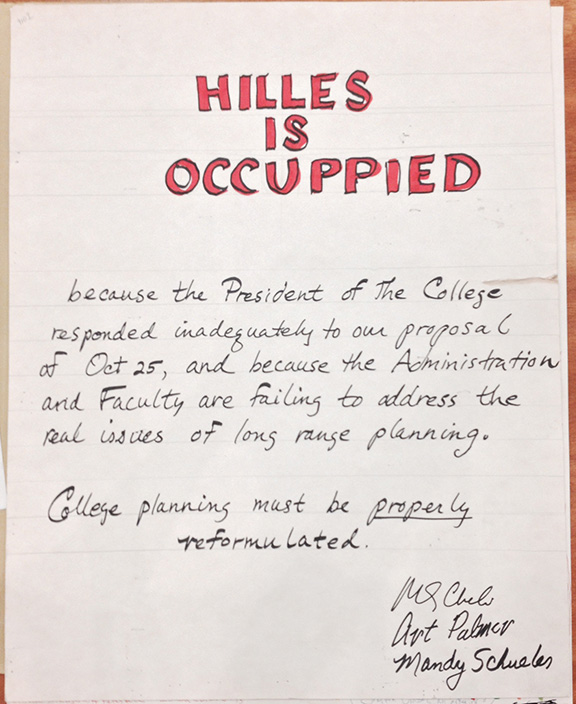 HILLES
IS
OCCUPPIED
because the President of The College
responded inadequately to our proposal
of Oct 25, and because the Administration
and Faculty are failing to address the
real issues of long range planning.
College planning must be properly
reformulated.
Art Palmer
Mandy Schueler